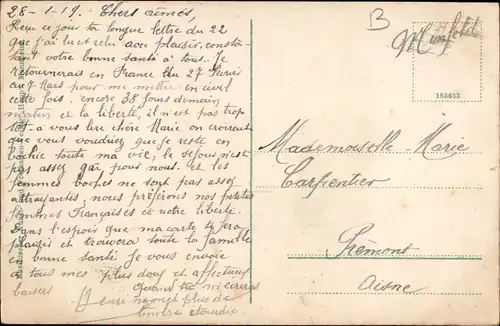 28-1-19. Chers aimés,
Reçu ce jour ta longue lettre du 22
que j'ai lu et relu avec plaisir, consta-
tant votre bonne santé à tous. Je
retournerais en France du 27 Février
au 7 Mars pour me mettre en civil
cette fois. encore 38 jours demain
matin et la liberté, il n'est pas trop
tôt. a vous lire chère Marie on croirait
que vous voudriez que je reste en
bochie toute ma vie, le séjour n'est
pas assez gai pour nous. et les
femmes boches ne sont pas assez
attrayantes, nous préférons nos petites
femmes Françaises et notre liberté.
Dans l'espoir que ma carte te fera
plaisir et trouvera toute la famille
en bonne santé Je vous envoie
à tous mes plus doux et affectueux
baisers
Quand tu m'écriras
Henri ne mets plus de
timbre étourdie.
B
183633
Mademoiselle Marie
Carpentier
Frémont
Aisne